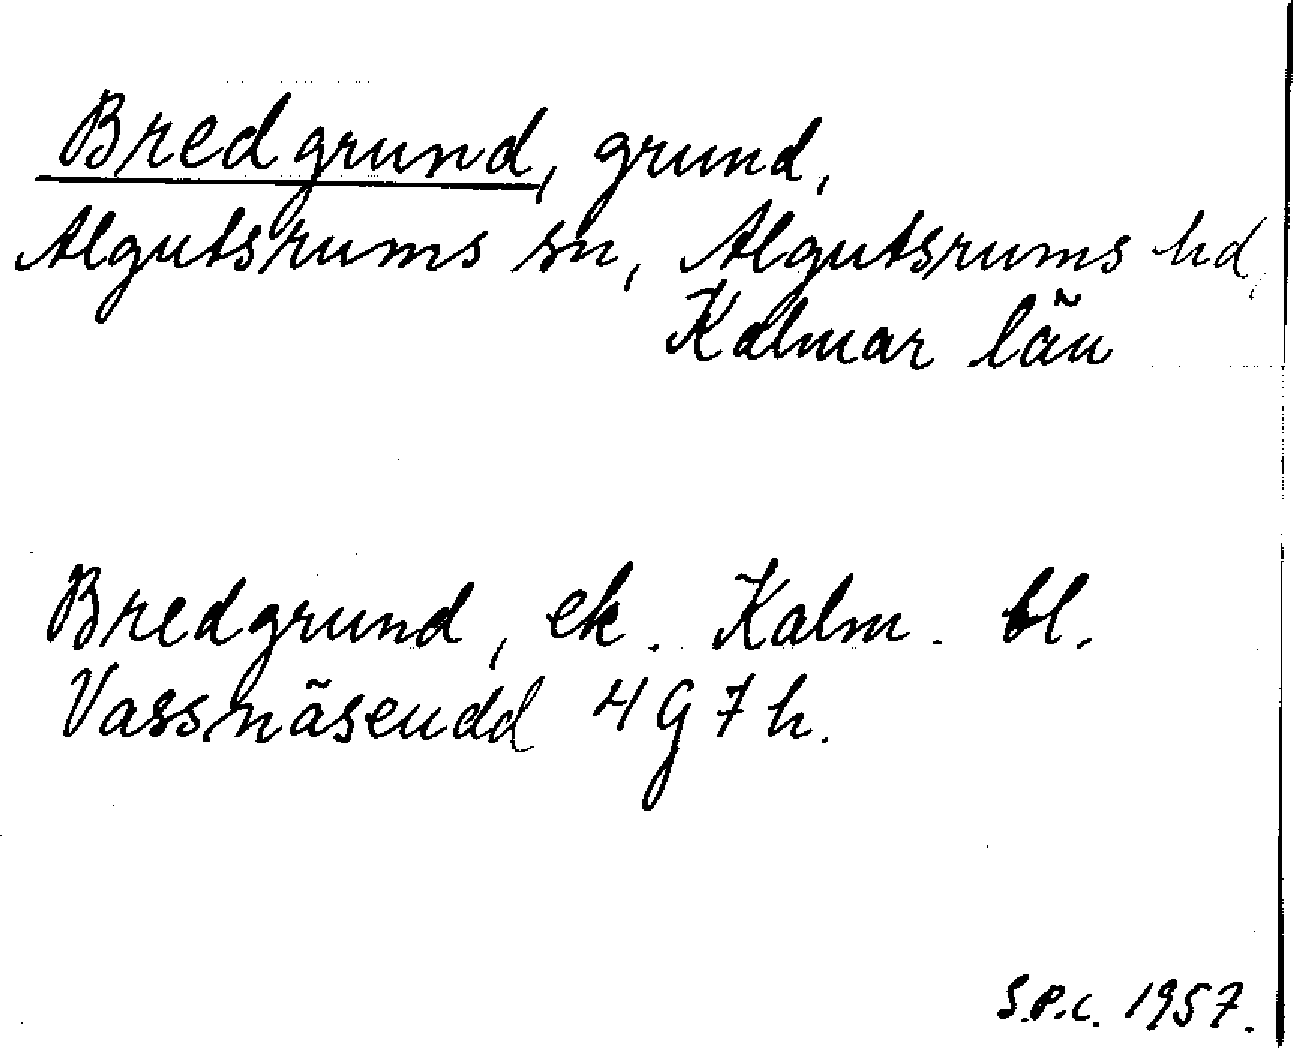 Bredgrund, grund,
Algutsrums sn, Algutsrums hd,
Kalmar län
Bredgrund, ek. Kalm. bl.
Vassnäsendd 4 G 7 h.
S.P.C. 1957.